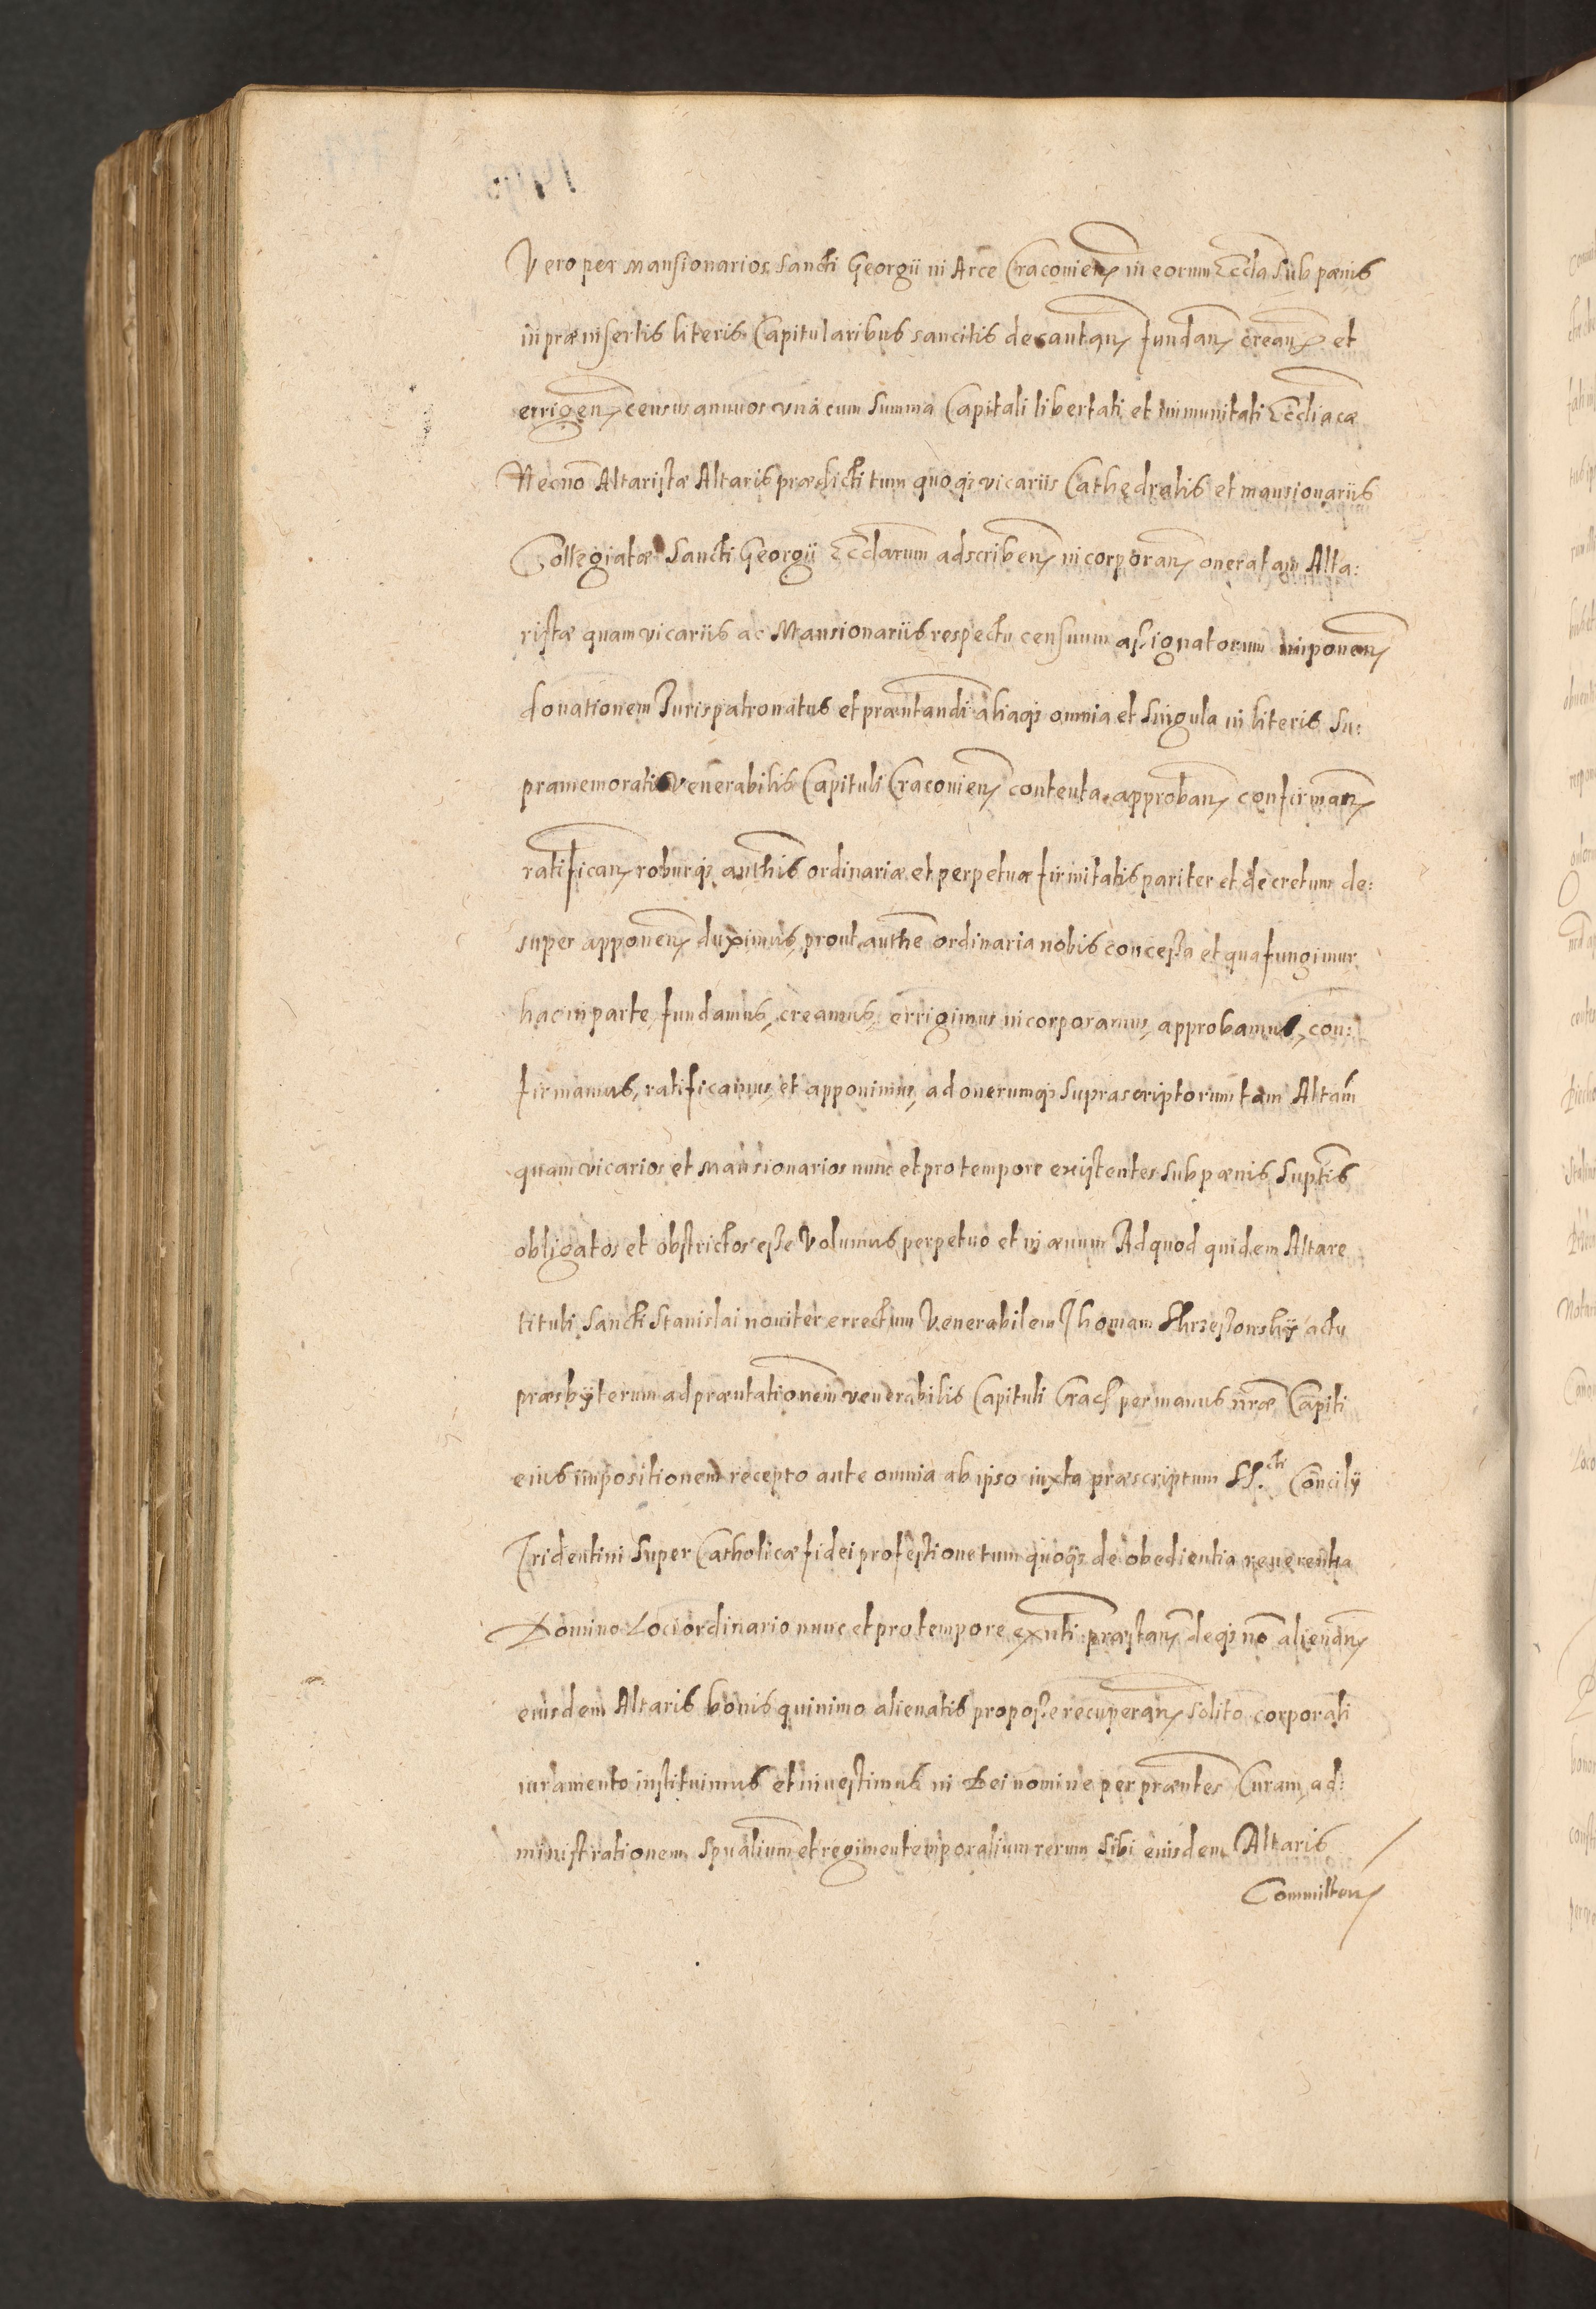 Vero per Mansionarios Sancti Georgii in Arce Cracouien̄ in eorum Eccl̄a sub pænis
in præinsertis literis Capitularibus sancitis decantan̄ fundan̄ crean̄ et
errigen̄ census annuos vna cum Summa Capitali libertati et immunitati Eccl̄iacæ
Necnō Altaristæ Altaris prædicti tum quoq; vicariis Cathedralis et mansionariis
Collegiatæ Sancti Georgii Eccl̄arum adscriben̄ incorporan̄ onera tam Alta:
ristæ quam vicariis ac Mansionariis respectu censuum assignatorum imponen̄
donationem Jurispatronatus et præn̄tandi aliaq; omnia et singula in literis Su:
pramemoratis Venerabilis Capituli Cracouien̄ contenta approban̄ confirman̄
ratifican̄ roburq; auth̄is ordinariæ et perpetuæ firmitatis pariter et decretum de:
super apponen̄ duximus, prout auth̄e ordinaria nobis concessa et qua fungimur
hac in parte, fundamus, creamus, errigimus incorporamus, approbamus, con:
firmamus, ratificamus, et apponimus, ad onerumq; suprascriptorum tam Altarm̄
quam vicarios et Mansionarios nunc et pro tempore existentes sub pænis Supt̄is
obligatos et obstrictos esse Volumus perpetuo et in æuum Ad quod quidem Altare
tituli Sancti Stanislai nouiter errectum Venerabilem Thomam actu
præsbyterum ad præn̄tationem venerabilis Capituli Crac̄ per manus nr̄æ Capiti
eius impositionem recepto ante omnia ab ipso iuxta præscriptum SS.cti Concilÿ
Tridentini Super Catholicæ fidei professione tum quoq; de obedientia reuerentia
Domino Loci ordinario nunc et pro tempore exn̄ti præstan̄ deq; nō alienan̄
eiusdem Altaris bonis quinimo alienatis pro posse recuperan̄ solito corporali
iuramento instituimus et inuestimus in Dei nomine per præn̄tes Curam, ad:
ministrationem sp̄ualium et regimen temporalium rerum sibi eiusdem Altaris
Committen̄